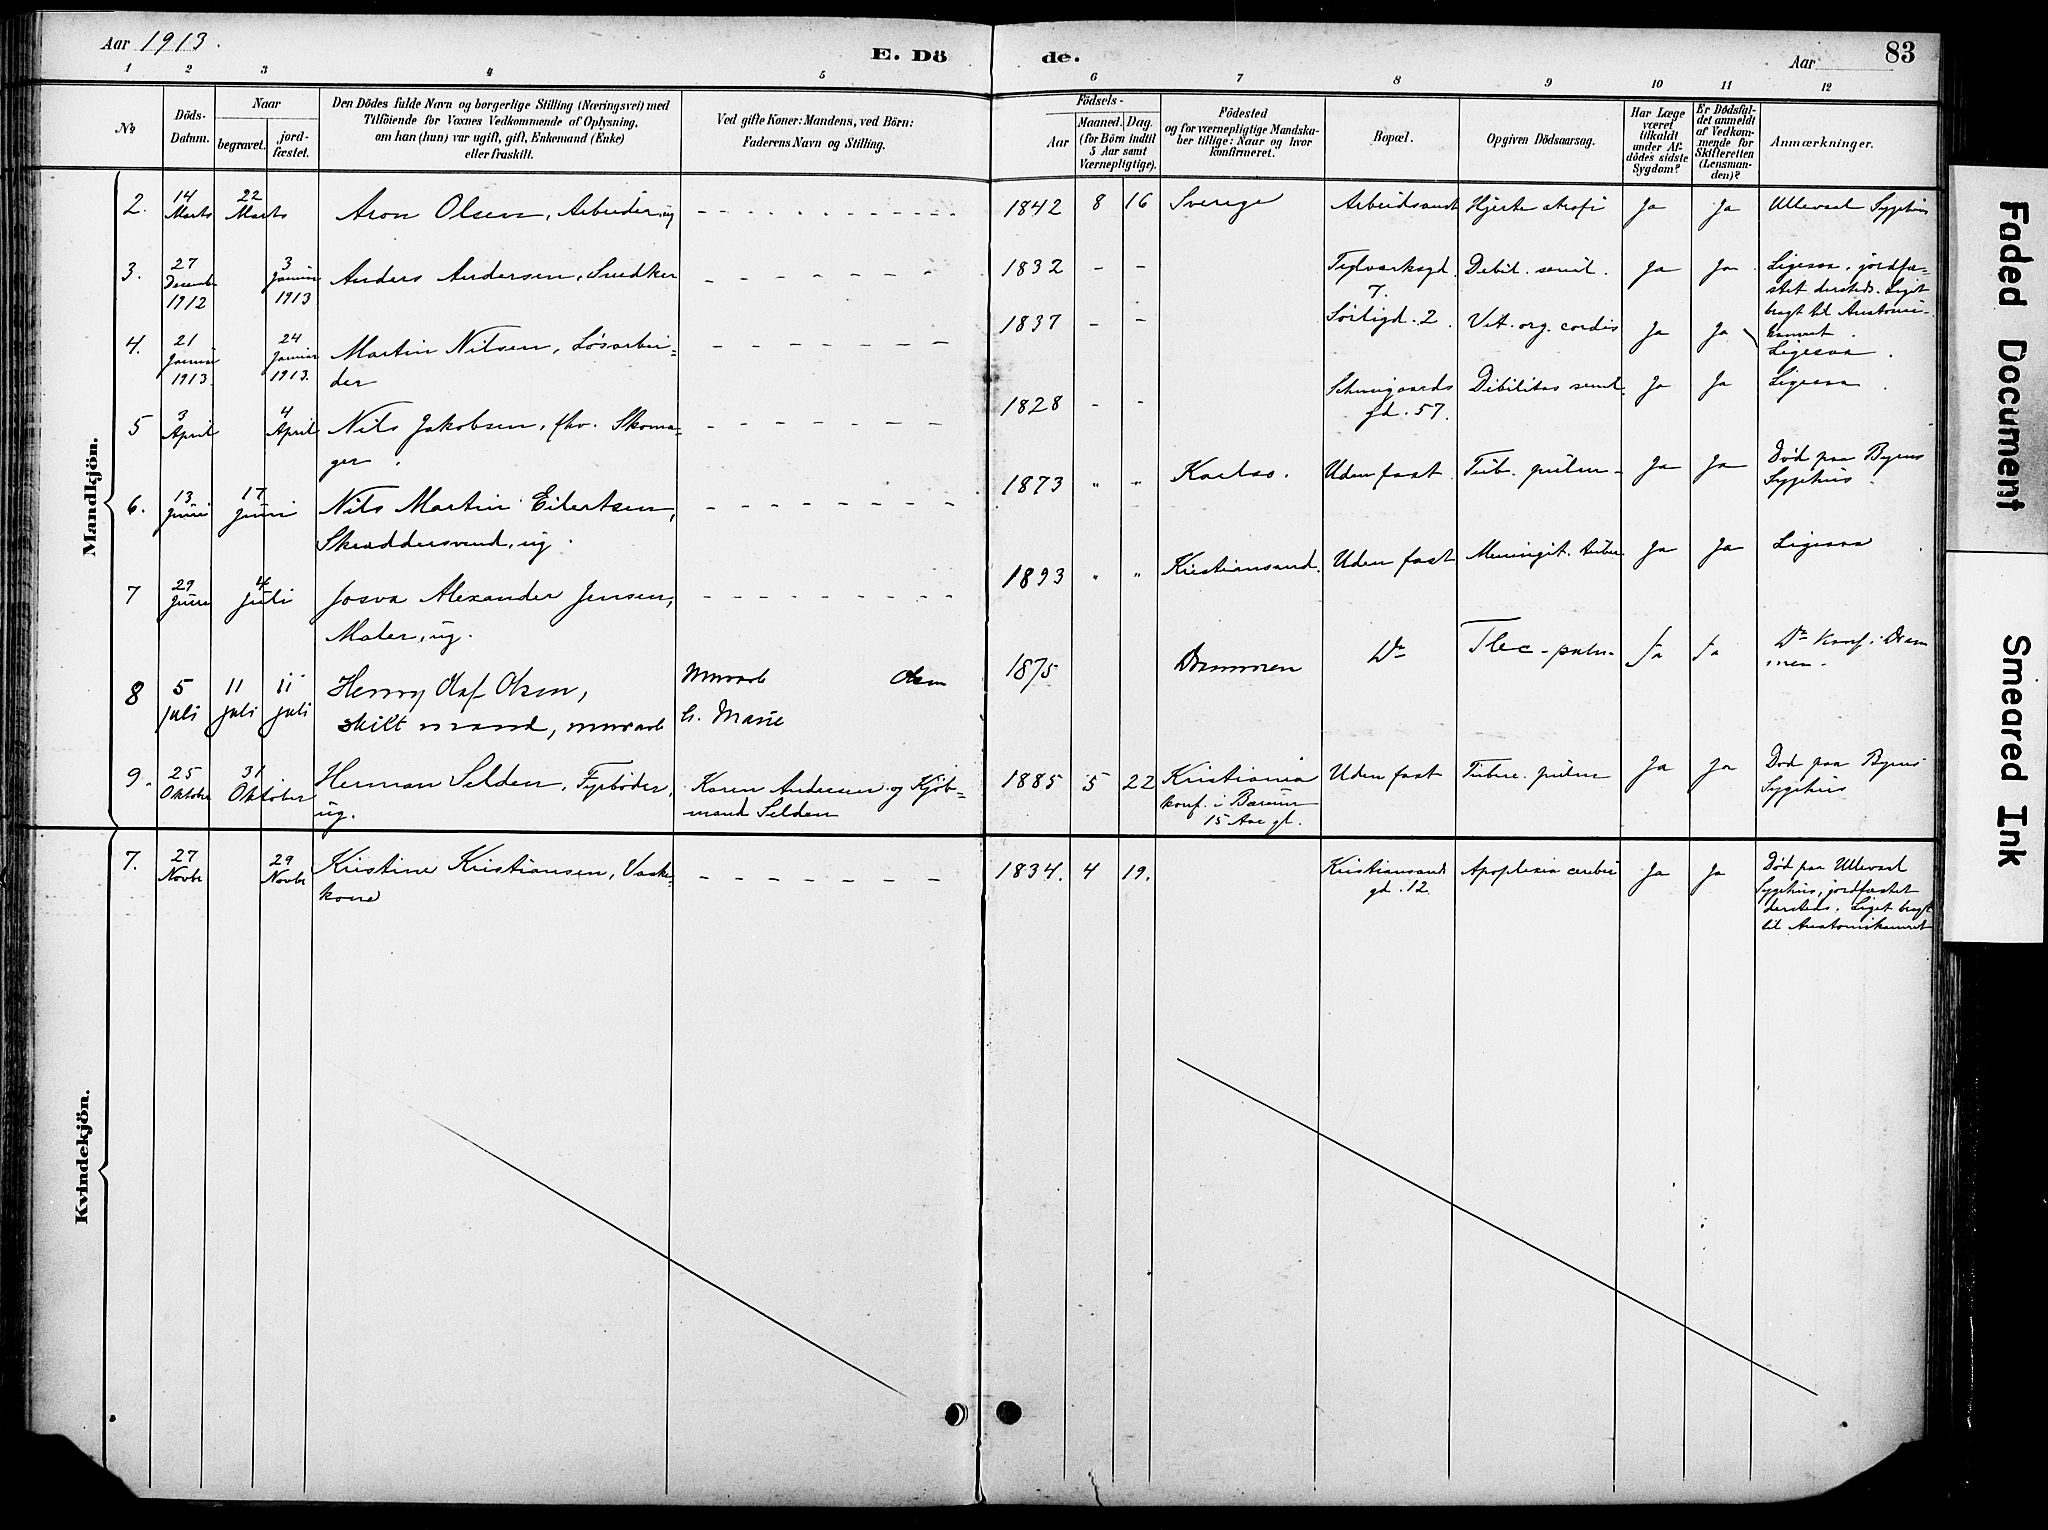 Aar 1913.
E. Dö de.
Aar 83
1 2 3 4 5 6 7 8 9 10 11 12
No
Döds-Datum.
Naar
begravet.
jord-fæstet.
Den Dödes fulde Navn og borgerlige Stilling (Næringsvei) med
Tilföiende for Voxnes Vedkommende af Oplysning,
om han (hun) var ugift, gift, Enkemand (Enke)
eller fraskilt.
Ved gifte Koner: Mandens, ved Börn:
Faderens Navn og Stilling.
Födsels-
Aar
Maaned. Dag.
(for Börn indtil
5 Aar samt
Værnepligtige).
Födested
og for værnepligtige Mandska-
ber tillige: Naar og hvor
konfirmeret.
Bopæl.
Opgiven Dödsaarsag.
Har Læge
været
tilkaldt
under Af-
dödes sidste
Sygdom?
Er Dödsfal-
det anmeldt
af Vedkom-
mende for
Skifteretten
(Lensman-
den)?
Anmærkninger.
Mandkjön.
2. 14 Marts 22 Marts Aron Olsen, Arbeider, ug 1842 8 16 Sverige Arbeidsanst Hjerte atrofi Ja Ja Ullevaal Sygehus
3. 27 Decemb 1912 3 Januar 1913 Anders Andersen, Snedker 1832 - - Teglverksgd. 7. Debil. senil. Ja Ja Ligesaa, jordfæ-
stet dersteds. Liget
bragt til Anatomi-
kamret.
4. 21 Januar 1913. 24 Januar 1913. Martin Nilsen, Løsarbei-
der 1837 - - Sörligd. 2. Vit. org. cordis Ja Ja Ligesaa.
5 3 April 4 April Nils Jakobsen, fhv. Skoma-
ger. 1828 - - Schweigaards
gd. 57. Debilitas senil. Ja Ja Ligesaa.
6. 13 Juni 17 Juni Nils Martin Eilertsen,
Skræddersvend, ug. 1873 " " Karlsø. Uden fast Tub. pulm. Ja Ja Død paa Byens
Sygehus.
7 29 Juni 4 Juli Josva Alexander Jensen,
Maler, ug. 1893 " " Kristiansand. Uden fast Meningit. tuber. Ja Ja Ligesaa
8 5 juli 11 juli 11 juli Henry Olaf Olsen,
skilt mand, murarb Murarb Olsen
h. Marie 1875 Drammen Do Ja Ja Do Konf. i Dram
men.
9. 25 Oktober 31 Oktober Herman Selden, Fyrbøder,
ug. Karen Andersen og Kjøb-
mand Selden 1885 5 22 Kristiania
konf. i Bærum
15 Aar gl. Uden fast Tuberc. pulm Ja Ja Død paa Byens
Sygehus
Kvindekjön.
7. 27 Novbr 29 Novbr Kristine Kristiansen, Vaske-
kone 1834. 4 19. Kristiansand
gd. 12 Apoplexia cerebri Ja Ja Død paa Ullevaal
Sygehus, jordfæstet
dersteds. Liget bragt
til Anatomikamret
Faded Document
Smeared Ink